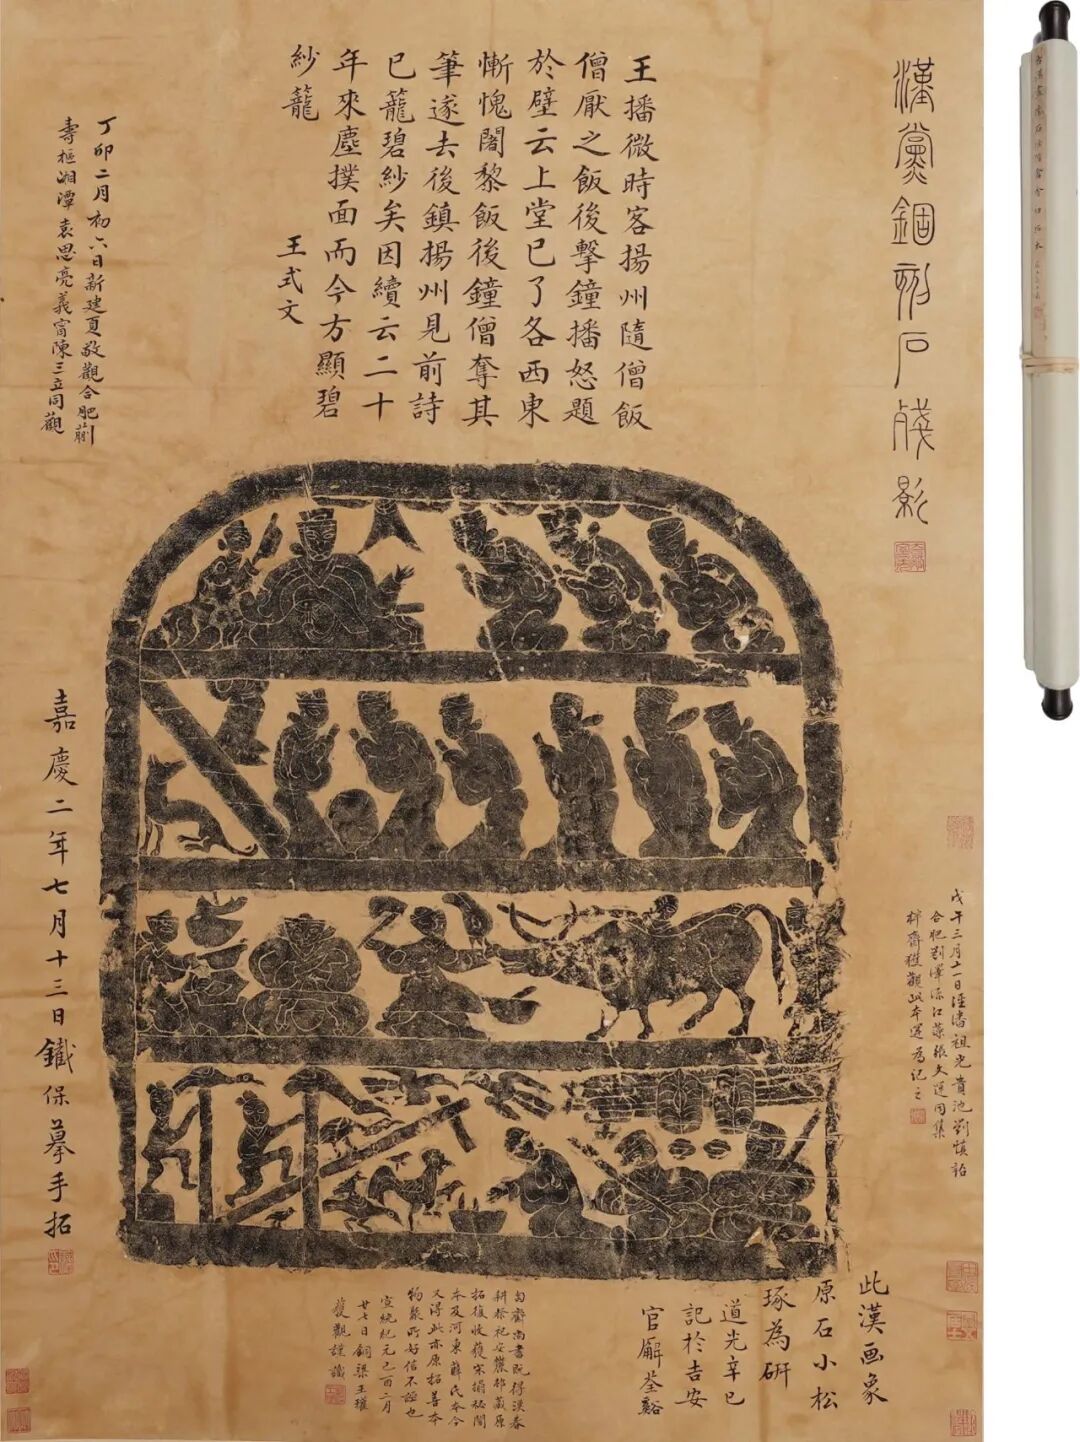 漢黨錮刻石殘影
王播微時客揚州隨僧飯
僧厭之飯後擊鐘播怒題
於壁云上堂已了各西東
慚愧闍黎飯後鐘僧奪其
筆遂去後鎮揚州見前詩
已籠碧紗矣因續云二十
年來塵撲面而今方顯碧
紗籠
王式文
丁卯二月初六日新建夏敬觀合肥蒯
壽樞湘潭袁思亮義甯陳三立同觀
嘉慶二年七月十三日鐵保摹手拓
戊午三月十一日涇潘祖光貴池劉慎詒
合肥劉澤源江蔡張文運同集
梣齋獲觀此本運為記之
此漢画象
原石小松
琢為研
道光辛巳
記於吉安
官廨荃谿
匋齋尚書既得漢春
耕祭祀安鹿邨藏原
拓復收獲宋搨秘閣
本及河東薛氏本今
又得此亦原拓善本
物聚所好信不誣也
宣統紀元己酉二月
廿七日銅梁王瓘
獲觀謹識